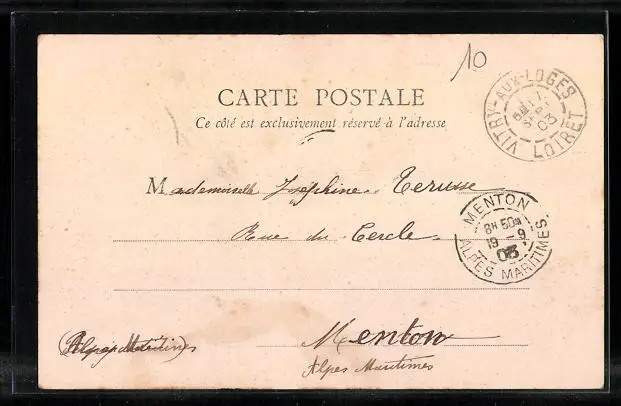 10
CARTE POSTALE
Ce côté est exclusivement réservé à l'adresse
VITRY-AUX-LOGES
17
SEPT
03
LOIRET
Mademoiselle Joséphine Terusse
MENTON
8H 50M
19 - 9
03
ALPES MARITIMES.
Rue du Cercle
Menton
(Alpes Maritimes
Alpes Maritimes